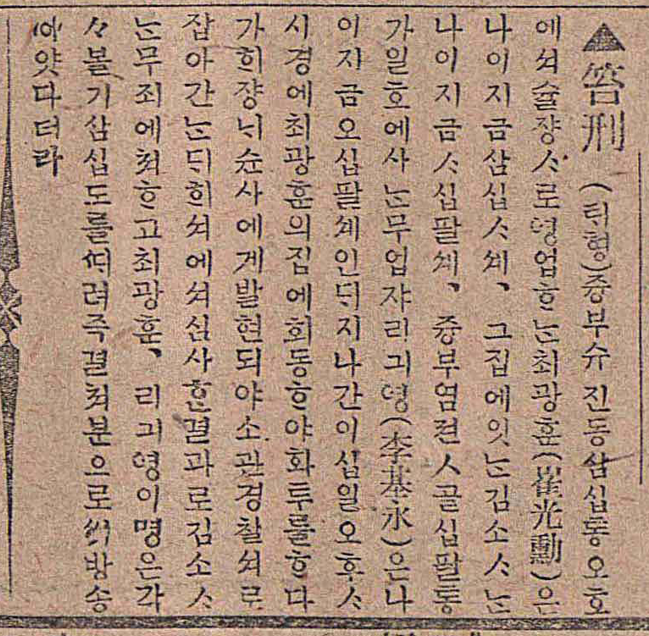 ▲笞刑 (틱형) 즁부슈진동삼십통오호
에셔슐쟝ᄉ로영업ᄒᄂ최광훈(崔光勳)은
나이지금삼십ᄉ셰、 그집에잇ᄂ김소ᄉᄂ
나이지금ᄉ십팔셰、 즁부염젼ᄉ골십팔통
가일호에사ᄂ무업쟈리긔영(李基永)은나
이지금오십팔셰인ᄃᆡ지나간이십일오후ᄉ
시경에최광훈의집에회동ᄒ야화투를ᄒ다
가희쟝ᄂᆡ슌사에게발현되야소관경찰셔로
잡아간ᄂᄃᆡᄒᆡ셔에셔심사ᄒᆫ결과로김소ᄉ
ᄂ무죄에쳐ᄒ고최광훈、 리긔영이명은각
々볼기삼십도를ᄯᅡ려즉결쳐분으로방송
ᄒᆞ얏다더라